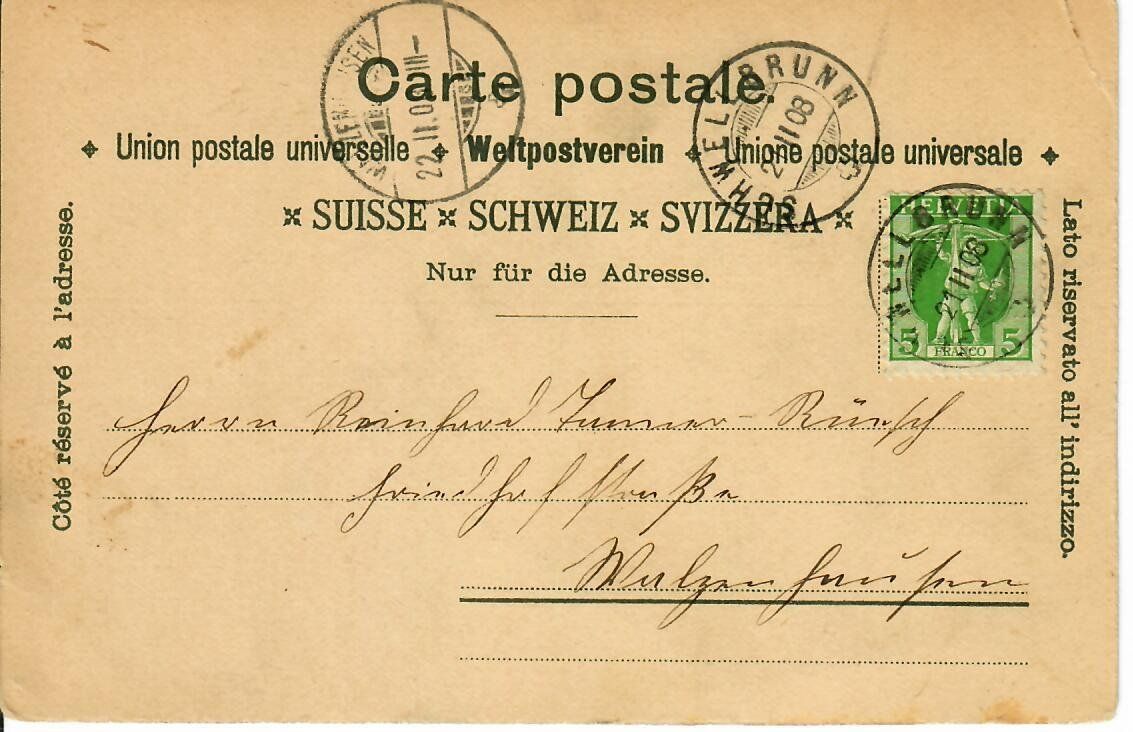 Carte postale.
Union postale universelle Weltpostverein Unione postale universale
SUISSE SCHWEIZ SVIZZERA
Nur für die Adresse.
Côté réservé à l'adresse.
Lato riservato all' indirizzo.
22.II.08
SCHWELLBRUNN
21 II 08
HELVETIA
5 FRANCO 5
WELLBRUNN
21 II 08
Herrn Reinhard Tanner-Rüesch
Friedhofstraße
Walzenhausen